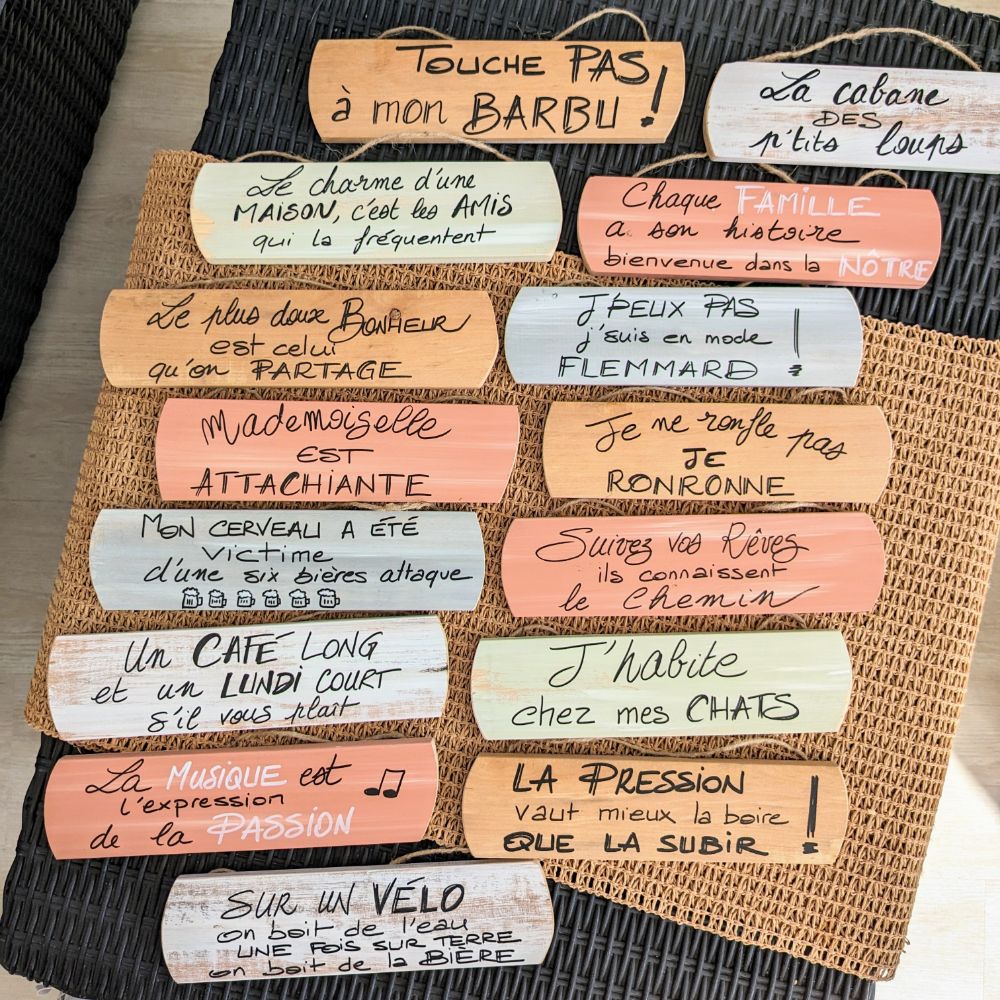 TOUCHE PAS
à mon BARBU !
La cabane
DES
p'tits loups
Le charme d'une
MAISON, c'est les AMIS
qui la fréquentent
Chaque FAMILLE
a son histoire
bienvenue dans la NÔTRE
Le plus doux BONHEUR
est celui
qu'on PARTAGE
J'PEUX PAS
j'suis en mode
FLEMMARD !
Mademoiselle
EST
ATTACHIANTE
Je ne ronfle pas
JE
RONRONNE
MON CERVEAU A ÉTÉ
Victime
d'une six bières attaque
Suivez vos Rêves
ils connaissent
le Chemin
Un CAFÉ LONG
et un LUNDI COURT
s'il vous plait
J'habite
chez mes CHATS
La MUSIQUE est
l'expression
de la PASSION
LA PRESSION
vaut mieux la boire
QUE LA SUBIR !
SUR UN VÉLO
on boit de l'eau
UNE FOIS SUR TERRE
on boit de la BIÈRE